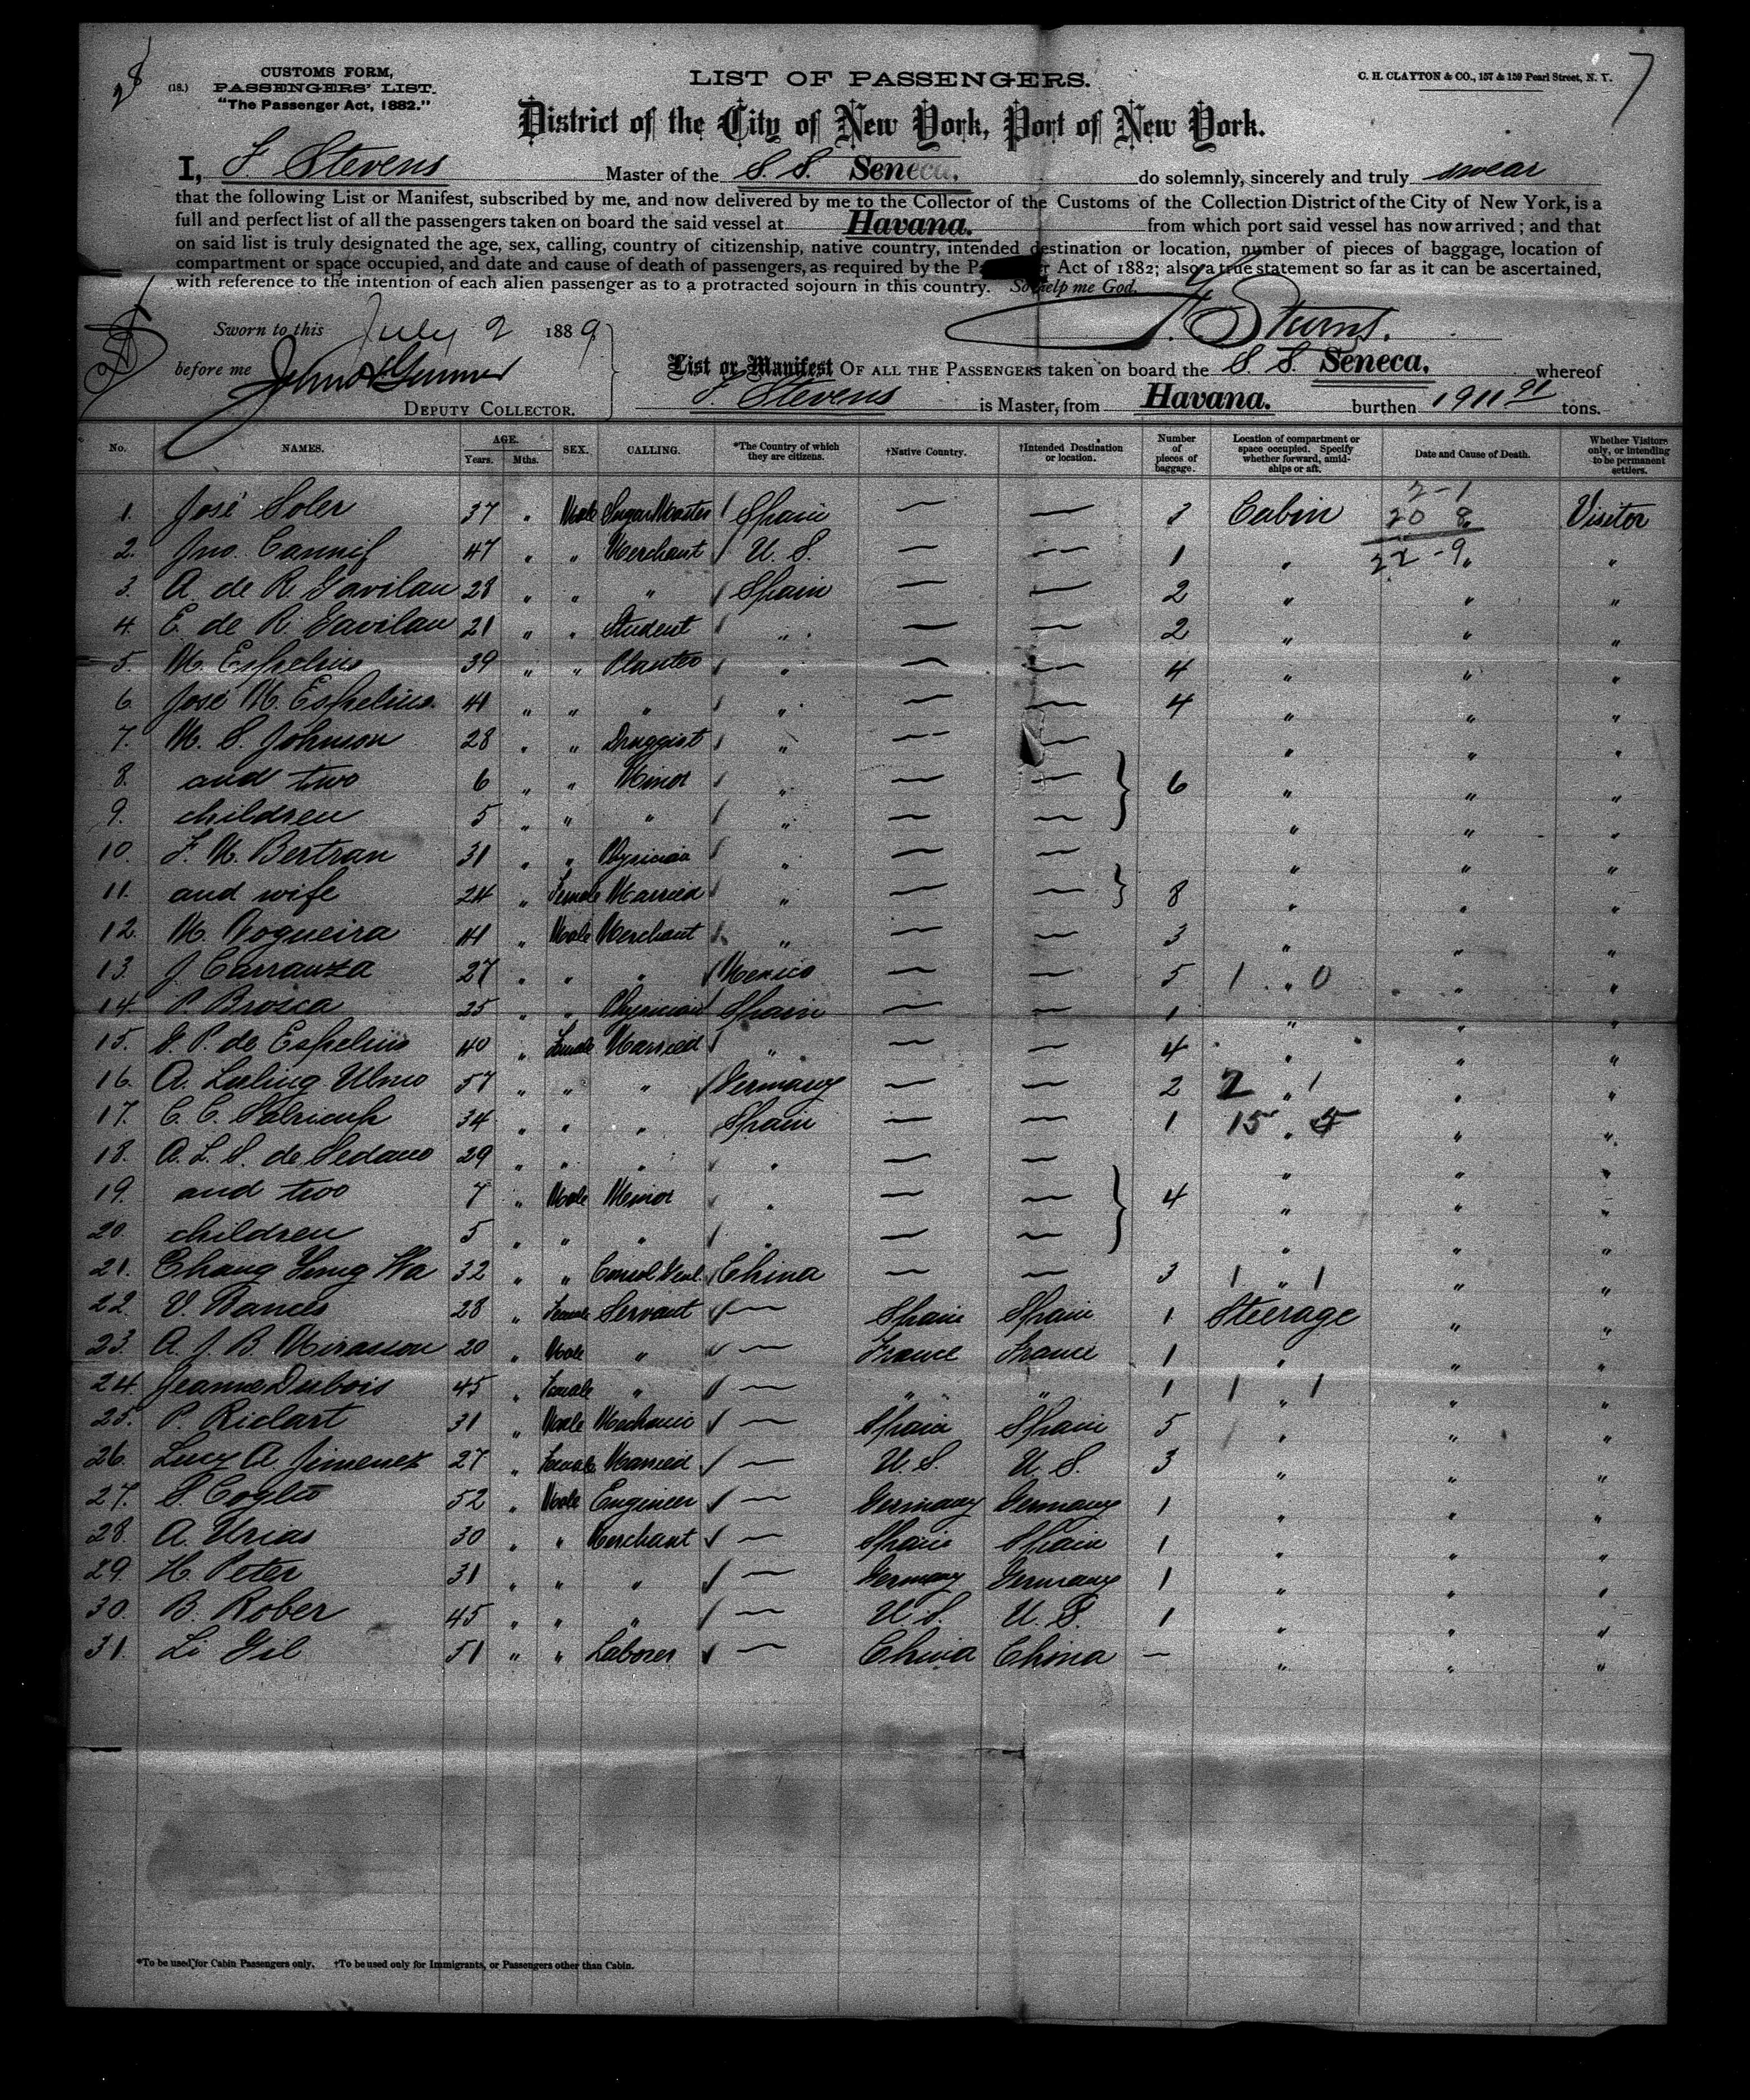 28
(18.)
CUSTOMS FORM,
PASSENGERS' LIST.
"The Passenger Act, 1882."
LIST OF PASSENGERS.
C. H. CLAYTON & CO., 157 & 159 Pearl Street, N. Y.
7
District of the City of New York, Port of New York.
I, F Stevens Master of the S. S. Seneca, do solemnly, sincerely and truly swear
that the following List or Manifest, subscribed by me, and now delivered by me to the Collector of the Customs of the Collection District of the City of New York, is a
full and perfect list of all the passengers taken on board the said vessel at Havana. from which port said vessel has now arrived; and that
on said list is truly designated the age, sex, calling, country of citizenship, native country, intended destination or location, number of pieces of baggage, location of
compartment or space occupied, and date and cause of death of passengers, as required by the Pa r Act of 1882; also a true statement so far as it can be ascertained,
with reference to the intention of each alien passenger as to a protracted sojourn in this country. So help me God.
Sworn to this July 2 1889
before me
DEPUTY COLLECTOR.
List or Manifest OF ALL THE PASSENGERS taken on board the S. S. Seneca, whereof
F Stevens is Master, from Havana. burthen 1911 91 tons.
No. NAMES. AGE. Years. Mths. SEX. CALLING. *The Country of which they are citizens. †Native Country. †Intended Destination or location. Number of pieces of baggage. Location of compartment or space occupied. Specify whether forward, amidships or aft. Date and Cause of Death. Whether Visitors only, or intending to be permanent settlers.
2-1
20 8
22-9
1. José Soler 37 " Male Sugar Master Spain — — Cabin Visitor
2. Jno. 47 " " Merchant U. S. — — 1 " " "
3. A. de R. Gavilan 28 " " " Spain — — 2 " " "
4. E. de R. Gavilan 21 " " Student " — — 2 " " "
5. M. Espelius 39 " " Planter " — — 4 " " "
6. José M. Espelius. 41 " " " " — — 4 " " "
7. M. S. Johnson 28 " " Druggist " — — " " "
8. and two 6 " " Minor " — — 6 " " "
9. children 5 " " " " — — " " "
10. F. M. Bertran 31 " " Physician " — — " " "
11. and wife 24 " Female Married " — — 8 " " "
12. M. Nogueira 41 " Male Merchant " — — 3 " " "
13. J. Carranza 27 " " " Mexico — — 5 1 " 0 " "
14. P. Brosca 25 " " Physician Spain — — 1 " " "
15. P. de Espelius 40 " Female Married " — — 4 " " "
16. A. Luling Ulmo 57 " " " Germany — — 2 2 " 1 " "
17. C. C. 34 " " " Spain — — 1 15 " " "
18. A. L. S. de Sedano 29 " " " " — — " " "
19. and two 7 " Male Minor " — — 4 " " "
20. children 5 " " " " — — " " "
21. Chang Yung Ha 32 " " China — — 3 1 " 1 " "
22. V. 28 " Female Servant — Spain Spain 1 Steerage " "
23. A. J. B. Mirasson 20 " Male " — France France 1 " " "
24. Jeanne Dubois 45 " Female " — " " 1 1 1 " " "
25. P. Riclart 31 " Male Mechanic — Spain Spain 5 " " "
26. Lucy A. Jimenez 27 " Female Married — U. S. U. S. 3 " " "
27. S. 52 " Male Engineer — Germany Germany 1 " " "
28. A. Urias 30 " " Merchant — Spain Spain 1 " " "
29. H. Peter 31 " " " — Germany Germany 1 " " "
30. B. Rober 45 " " " — U. S. U. S. 1 " " "
31. Li Gil 51 " " Laborer — China China — " " "
*To be used for Cabin Passengers only. †To be used only for Immigrants, or Passengers other than Cabin.